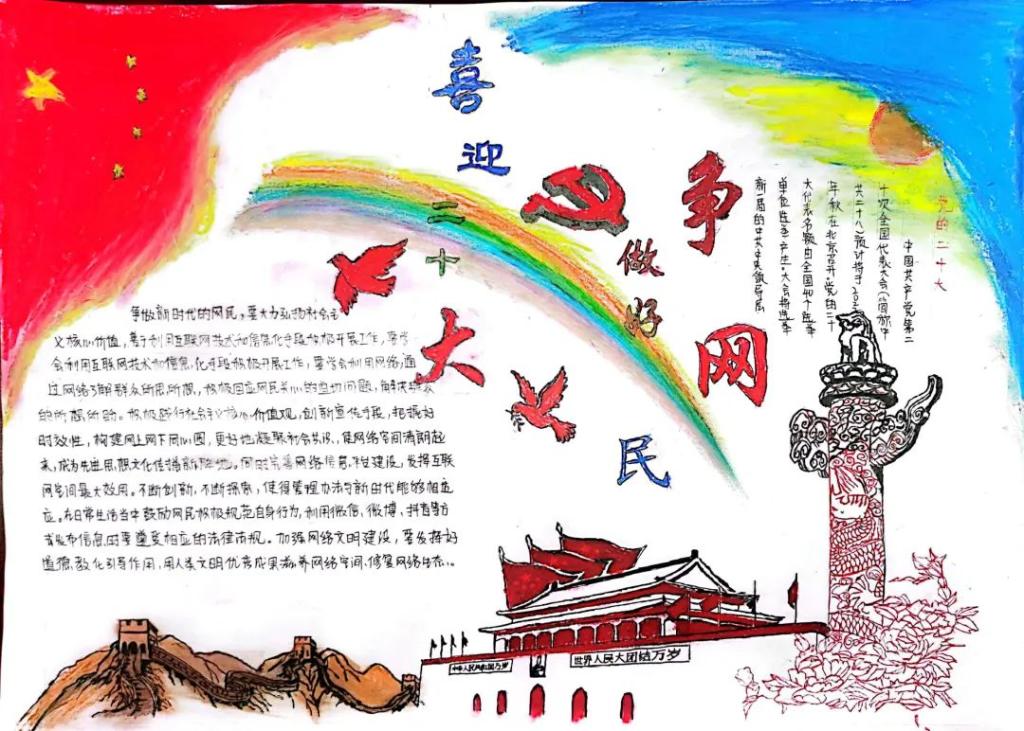 喜迎
二十
大
争
做好
网
民
党的二十大
中国共产党第二
十次全国代表大会(简称中
共二十大)预计将于202
年秋在北京召开。党的二十
大代表名额由全国40个选举
单位选举产生。大会将选举
新一届的中共中央领导层
争做新时代的网民,要大力弘扬社会主
义核心价值,善于利用互联网技术和信息化手段积极开展工作,要学
会利用互联网技术和信息,化手段积极开展工作,要学会利用网络,通
过网络了解群众所思,所想,积极回应网民关心的迫切问题,解决群众
的所想所盼。积极践行社会主义核心价值观,创新宣传手段,把握好
时效性,构建网上网下同心圆,更好地凝聚社会共识,使网络空间清朗起
来,成为先进思想文化传播新阵地。同时完善网络信息,建设,发挥互联
网空间最大效用。不断创新,不断探索,使得管理办法与新时代能够相适
应。在日常生活当中鼓励网民积极规范自身行为,利用微信,微博,抖音等方
式发布信息时要遵守相应的法律法规。加强网络文明建设,要发挥好
道德,教化引导作用,用人类文明优秀成果滋养网络空间、修复网络生态...
中华人民共和国万岁
世界人民大团结万岁